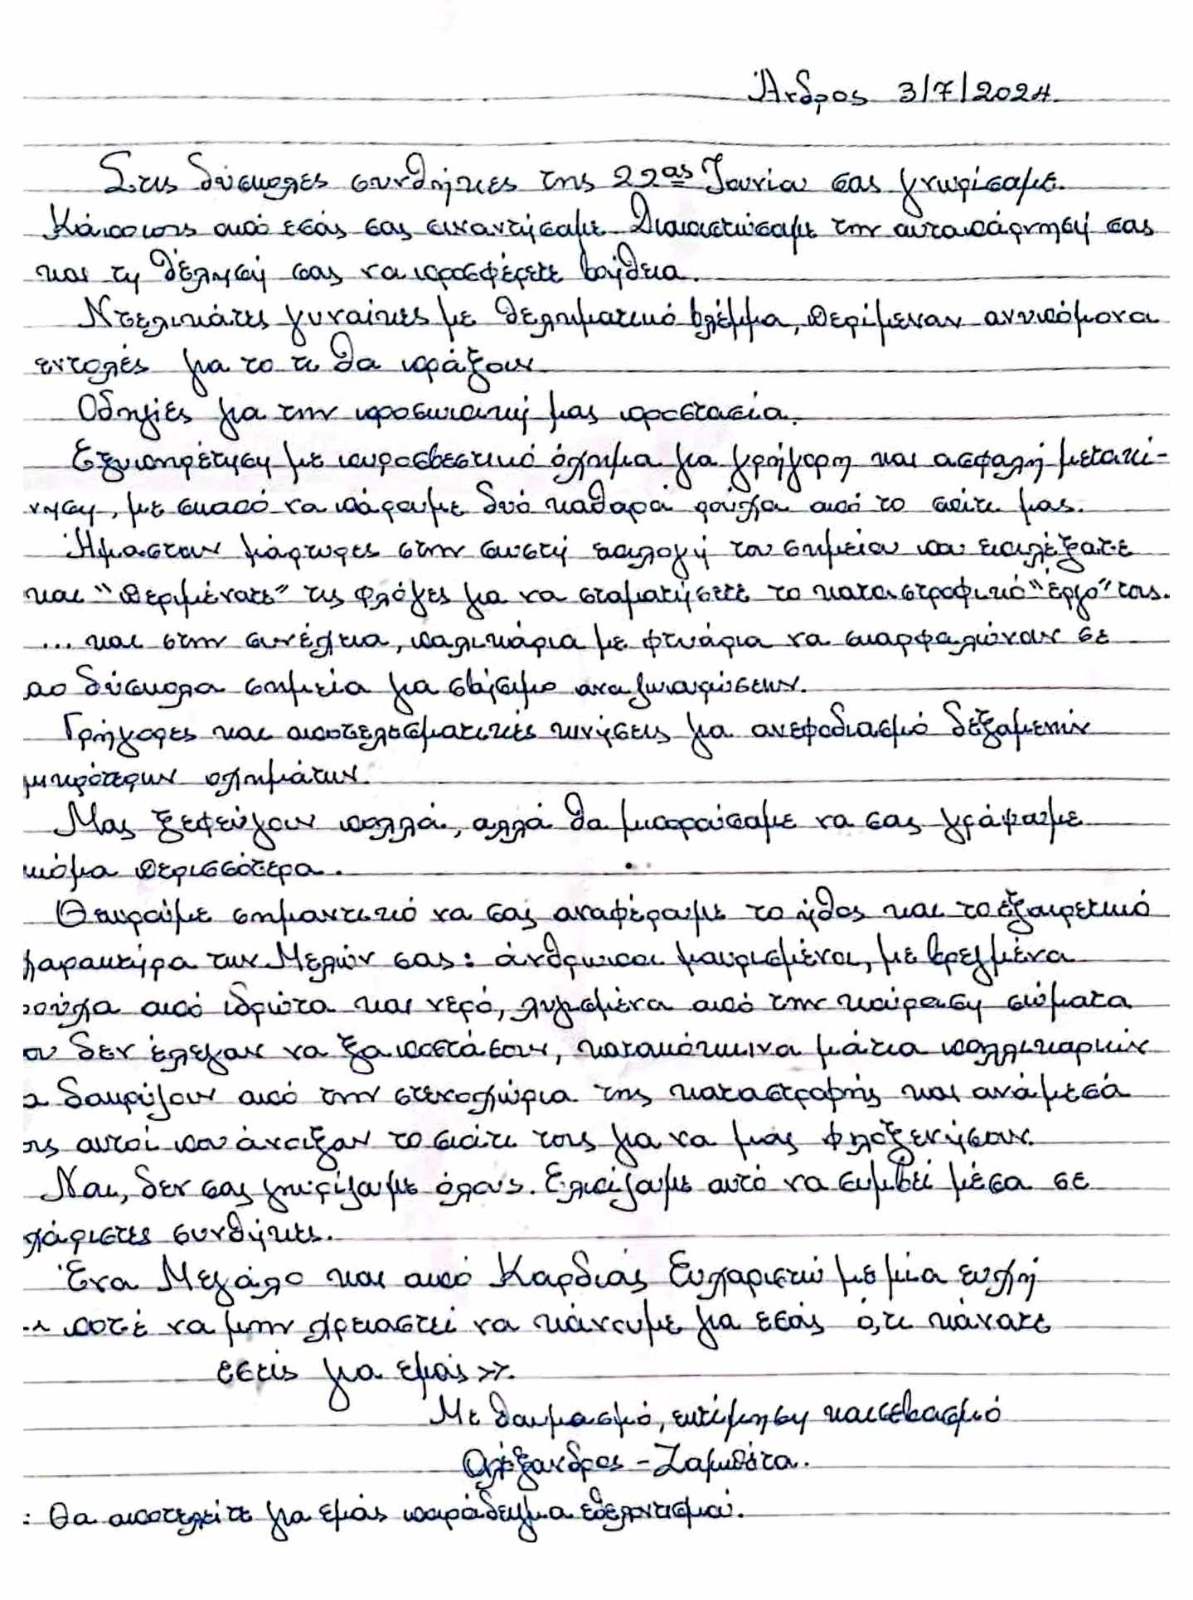 Άνδρος 3/7/2024
Στις δύσκολες συνθήκες της 22ας Ιουνίου σας γνωρίσαμε.
Κάποιους από εσάς σας συναντήσαμε. Διαπιστώσαμε την αυταπάρνησή σας
και τη θέλησή σας να προσφέρετε βοήθεια.
Ντελικάτες γυναίκες με θεληματικό βλέμμα, περίμεναν ανυπόμονα
εντολές για το τι θα πράξουν.
Οδηγίες για την προσωπική μας προστασία.
Εξυπηρέτηση με πυροσβεστικό όχημα για γρήγορη και ασφαλή μετακί-
νηση, με σκοπό να πάρουμε δυό καθαρά ρούχα από το σπίτι μας.
Ήμασταν μάρτυρες στην σωστή επιλογή του σημείου που επιλέξατε
και "περιμένατε" τις φλόγες για να σταματήσετε το καταστροφικό "έργο" τους.
... και στην συνέχεια, παλικάρια με φτυάρια να σκαρφαλώνουν σε
πιο δύσκολα σημεία για σβήσιμο αναζωπυρώσεων.
Γρήγορες και αποτελεσματικές κινήσεις για ανεφοδιασμό δεξαμενών
μικρότερων οχημάτων.
Μας ξεφεύγουν πολλά, αλλά θα μπορούσαμε να σας γράψουμε
κόμα περισσότερα.
Θεωρούμε σημαντικό να σας αναφέρουμε το ήθος και το εξαιρετικό
χαρακτήρα των Μελών σας: άνθρωποι μαυρισμένοι, με βρεγμένα
ρούχα από ιδρώτα και νερό, λυγισμένα από την κούραση σώματα
ου δεν έλεγαν να ξαποστάσουν, κατακόκκινα μάτια παλλικαριών
α δακρύζουν από την στενοχώρια της καταστροφής και ανάμεσά
ους αυτοί που άνοιξαν το σπίτι τους για να μας φιλοξενήσουν.
Ναι, δεν σας γνωρίζαμε όλους. Ελπίζουμε αυτό να συμβεί μέσα σε
χάριστες συνθήκες.
Ένα Μεγάλο και από Καρδιάς Ευχαριστώ με μία ευχή
ποτέ να μην χρειαστεί να κάνουμε για εσάς ό,τι κάνατε
εσείς για εμάς».
Με θαυμασμό, εκτίμηση και σεβασμό
Αλέξανδρος - Ζαμπέτα.
: Θα αποτελείτε για εμάς παράδειγμα εθελοντισμού.